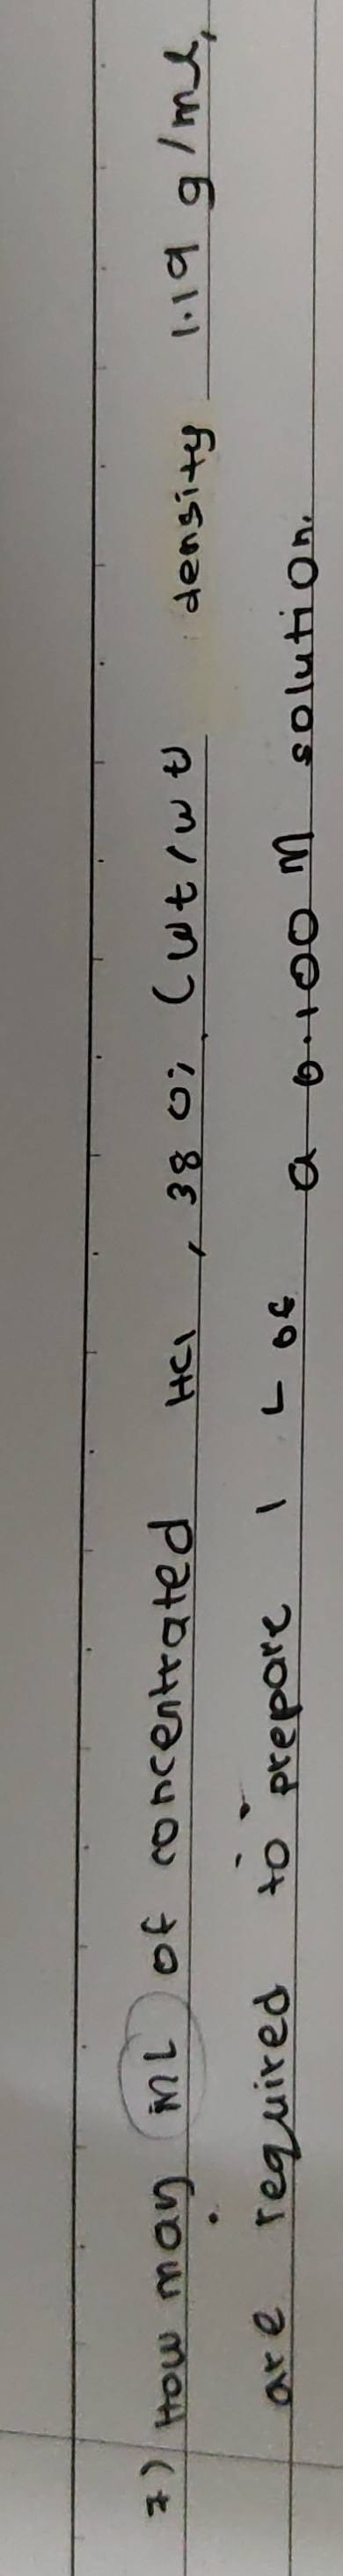 7) How many mL of concentrated HCl, 38 % (wt/wt) density 1.19 g/mL,
are required to prepare 1 L of a 0.100 M solution.